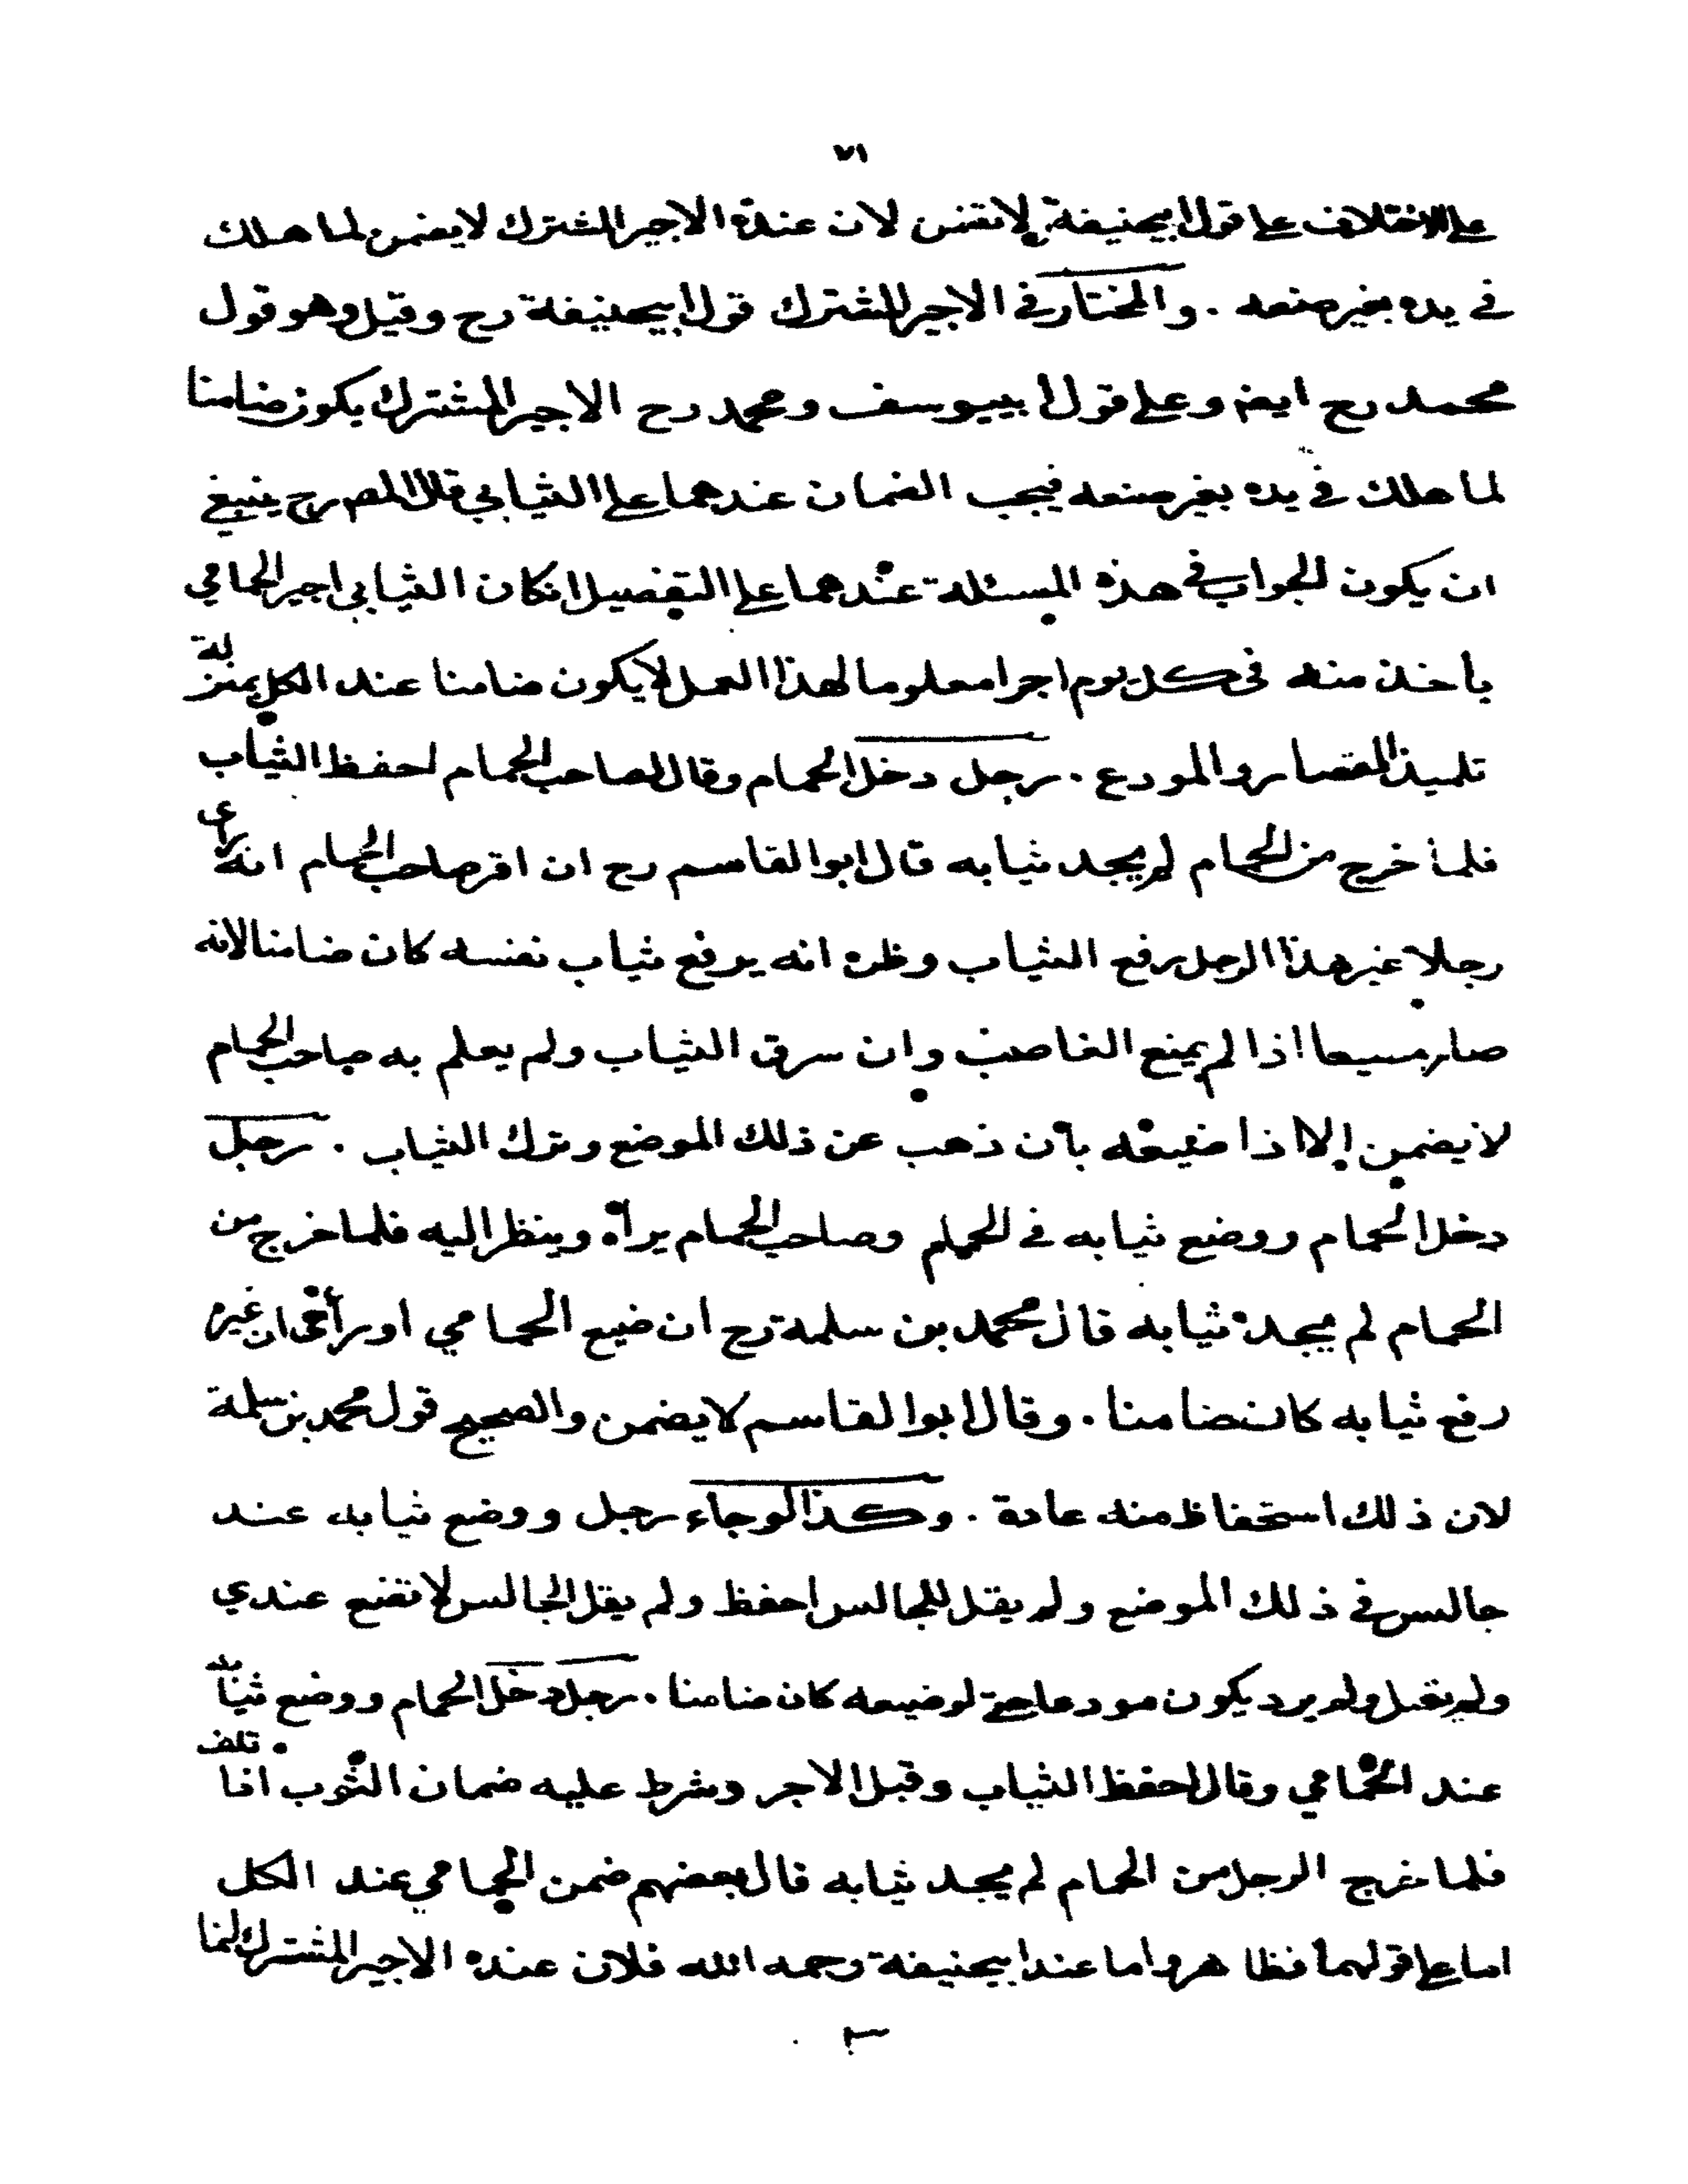 ٧١
على الاختلاف على قول ابيحنيفة لا تضمن لان عنده الاجير المشترك لا يضمن لما هلك
في يده بغير صنعه . والمختار في الاجير المشترك قول ابيحنيفة رح وقيل وهو قول
محمد رح ايضا وعلى قول ابييوسف ومحمد رح الاجير المشترك يكون ضامنا
لما هلك في يده بغير صنعه فيجب الضمان عندهما على الثيابي قال المص رح ينبغي
ان يكون الجواب في هذه المسئلة عندهما على التفصيل انكان الثيابي اجير الحمامي
يأخذ منه في كل يوم اجرا معلوما لهذا العمل لا يكون ضامنا عند الكل بمنزلة
تلميذ القصار والمودع . رجل دخل الحمام وقال لصاحب الحمام احفظ الثياب
فلما خرج من الحمام لم يجد ثيابه قال ابو القاسم رح ان اقر صاحب الحمام انه رأى
رجلا غير هذا الرجل رفع الثياب وظن انه يرفع ثياب نفسه كان ضامنا لانه
صار مسيعا اذا لم يمنع الغاصب وان سرق الثياب ولم يعلم به صاحب الحمام
لا يضمن الا اذا ضيعه بان ذهب عن ذلك الموضع وترك الثياب . رجل
دخل الحمام ووضع ثيابه في الحمام وصاحب الحمام يراه وينظر اليه فلما خرج من
الحمام لم يجد ثيابه قال محمد بن سلمة رح ان ضيع الحمامي او رأى ان غيره
رفع ثيابه كان ضامنا . وقال ابو القاسم لا يضمن والصحيح قول محمد بن سلمة
لان ذلك استحفاظ منه عادة . وكذا لو جاء رجل ووضع ثيابه عند
جالس في ذلك الموضع ولم يقل للجالس احفظ ولم يقل الجالس لا تضع عندي
ولم يقبل ولم يرد يكون مودعا حتى لو ضيعه كان ضامنا . رجل دخل الحمام ووضع ثيابه
عند الحمامي وقال احفظ الثياب وقبل الاجر وشرط عليه ضمان الثوب اذا تلف
فلما خرج الرجل من الحمام لم يجد ثيابه قال بعضهم ضمن الحمامي عند الكل
اما على قولهما فظاهر واما عند ابيحنيفة رحمه الله فلان عنده الاجير المشترك انما